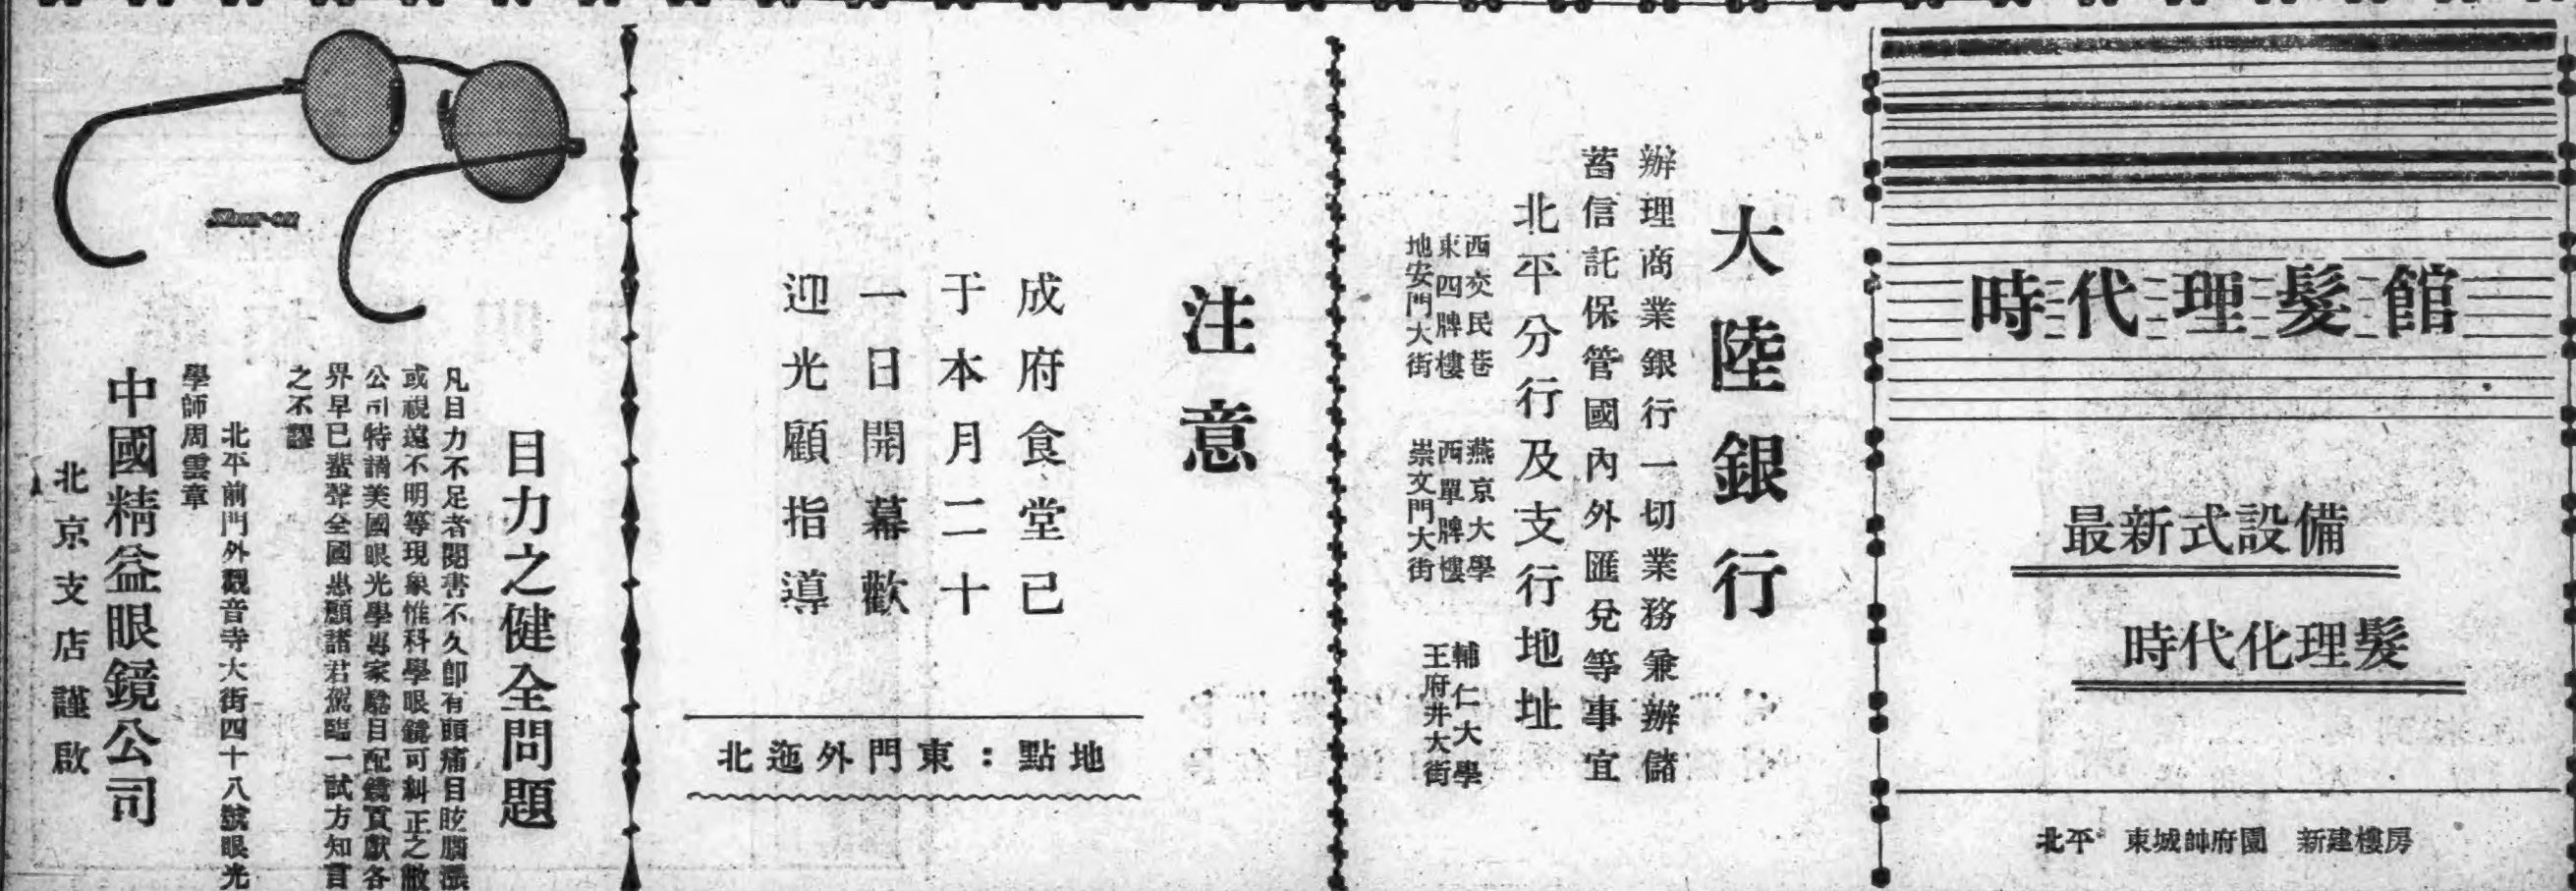 時代理髮館
最新式設備
時代化理髮
北平 東城帥府園 新建樓房
大陸銀行
辦理商業銀行一切業務兼辦儲
蓄信託保管國內外匯兌等事宜
北平分行及支行地址
西交民巷
東四牌樓
地安門大街
燕京大學
西單牌樓
崇文門大街
輔仁大學
王府井大街
注意
成府食堂已
于本月二十
一日開幕歡
迎光顧指導
地點：東門外迤北
Shur-on
目力之健全問題
凡目力不足者閱書不久卽有頭痛目眩腦漲
或視遠不明等現象惟科學眼鏡可糾正之敝
公司特請美國眼光學專家驗目配鏡貢獻各
界早已蜚聲全國惠顧諸君駕臨一試方知言
之不謬
北平前門外觀音寺大街四十八號眼光
學師周雲章
中國精益眼鏡公司
北京支店謹啟